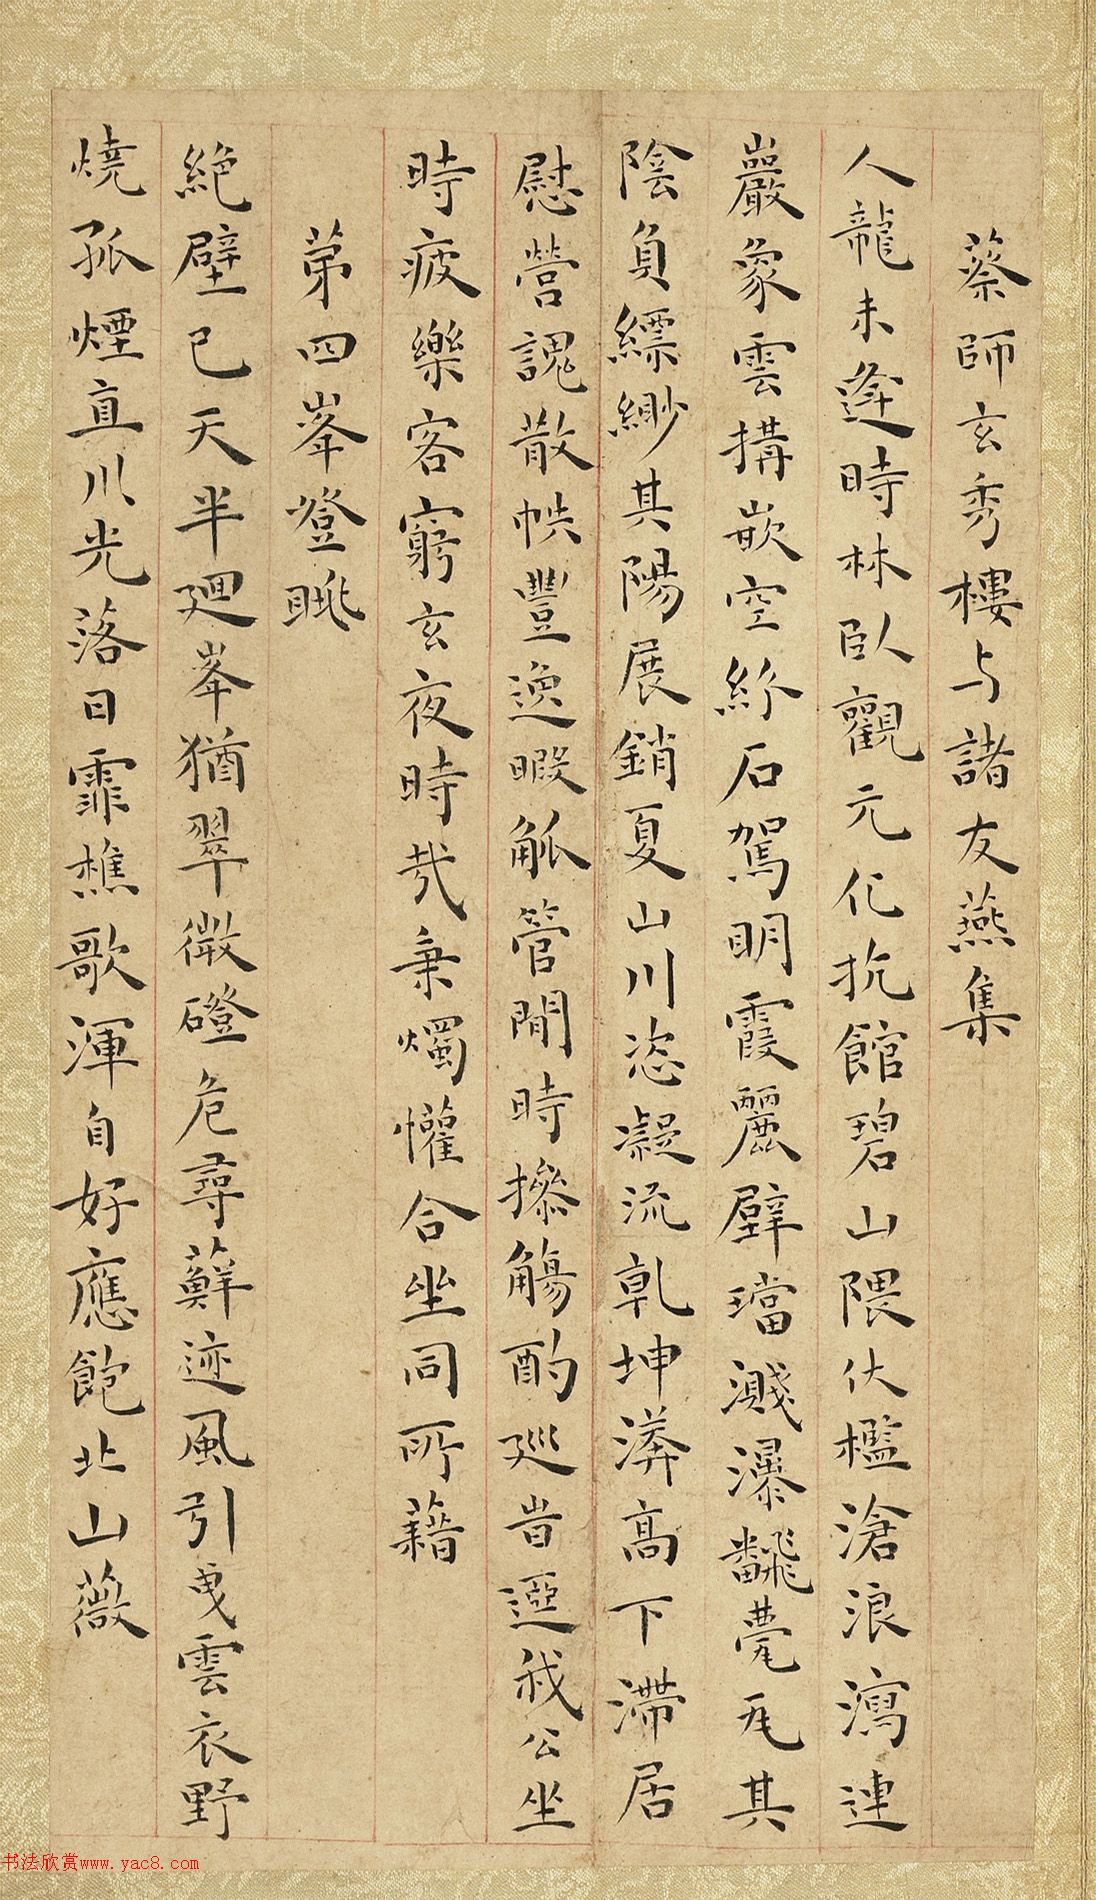 蔡師玄秀樓与諸友燕集
人龍未逢時林臥觀元化抗館碧山隈伏檻滄浪瀉連
巖象雲搆嵌空紛石駕明霞麗璧璫濺瀑翻甍瓦其
陰負縹緲其陽展銷夏山川恣凝流乾坤漭高下滯居
慰營讝散帙豐逸暇觚管閒時摻觴酌巡昔逕我公坐
時疲樂客窮玄夜時哉秉燭懽合坐同所藉
苐四峯登眺
絶壁已天半廻峯猶翠微磴危尋蘚迹風引曳雲衣野
燒孤煙直川光落日霏樵歌渾自好應飽北山薇
书法欣赏www.yac8.com